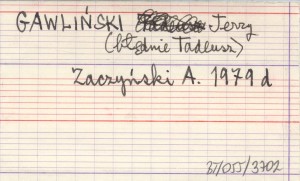 GAWLIŃSKI Jerzy
(błędnie Tadeusz)
Zaczyński A. 1979 d
/3702